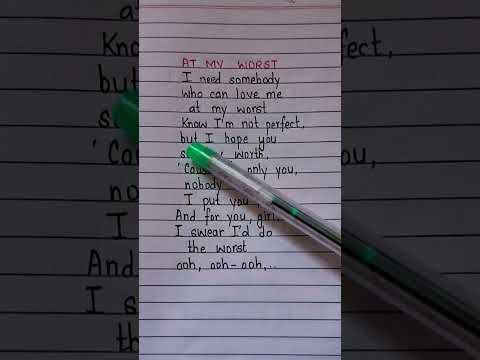 AT MY WORST
I need somebody
who can love me
at my worst
Know I'm not perfect,
but I hope you
worth,
only you,
nobody
I put you
And for you, girl,
I swear I'd do
the worst
ooh, ooh-ooh,..